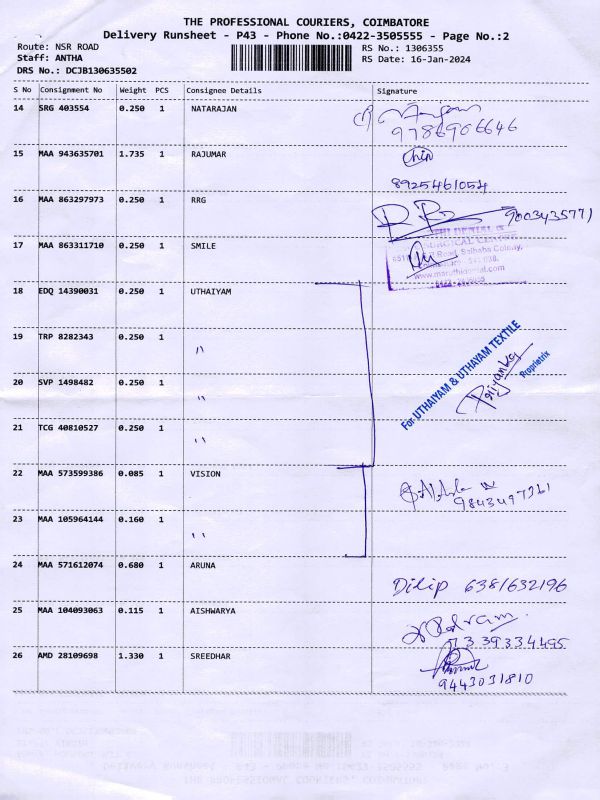 THE PROFESSIONAL COURIERS, COIMBATORE
Delivery Runsheet - P43 - Phone No.:0422-3505555 - Page No.:2
Route: NSR ROAD RS No.: 1306355
Staff: ANTHA RS Date: 16-Jan-2024
DRS No.: DCJB130635502
S No Consignment No Weight PCS Consignee Details Signature
14 SRG 403554 0.250 1 NATARAJAN
9786906646
15 MAA 943635701 1.735 1 RAJUMAR
8925461054
16 MAA 863297973 0.250 1 RRG 9003435771
17 MAA 863311710 0.250 1 SMILE
Road, Saibaba Colony,
18 EDQ 14390031 0.250 1 UTHAIYAM
19 TRP 8282343 0.250 1 ״
For UTHAIYAM & UTHAYAM TEXTILE
Priyanka
Proprietrix
20 SVP 1498482 0.250 1 ״
21 TCG 40810527 0.250 1 ״
22 MAA 573599386 0.085 1 VISION
23 MAA 105964144 0.160 1 ״
24 MAA 571612074 0.680 1 ARUNA Dilip 6381632196
25 MAA 104093063 0.115 1 AISHWARYA
7339334495
26 AMD 28109698 1.330 1 SREEDHAR
9443031810